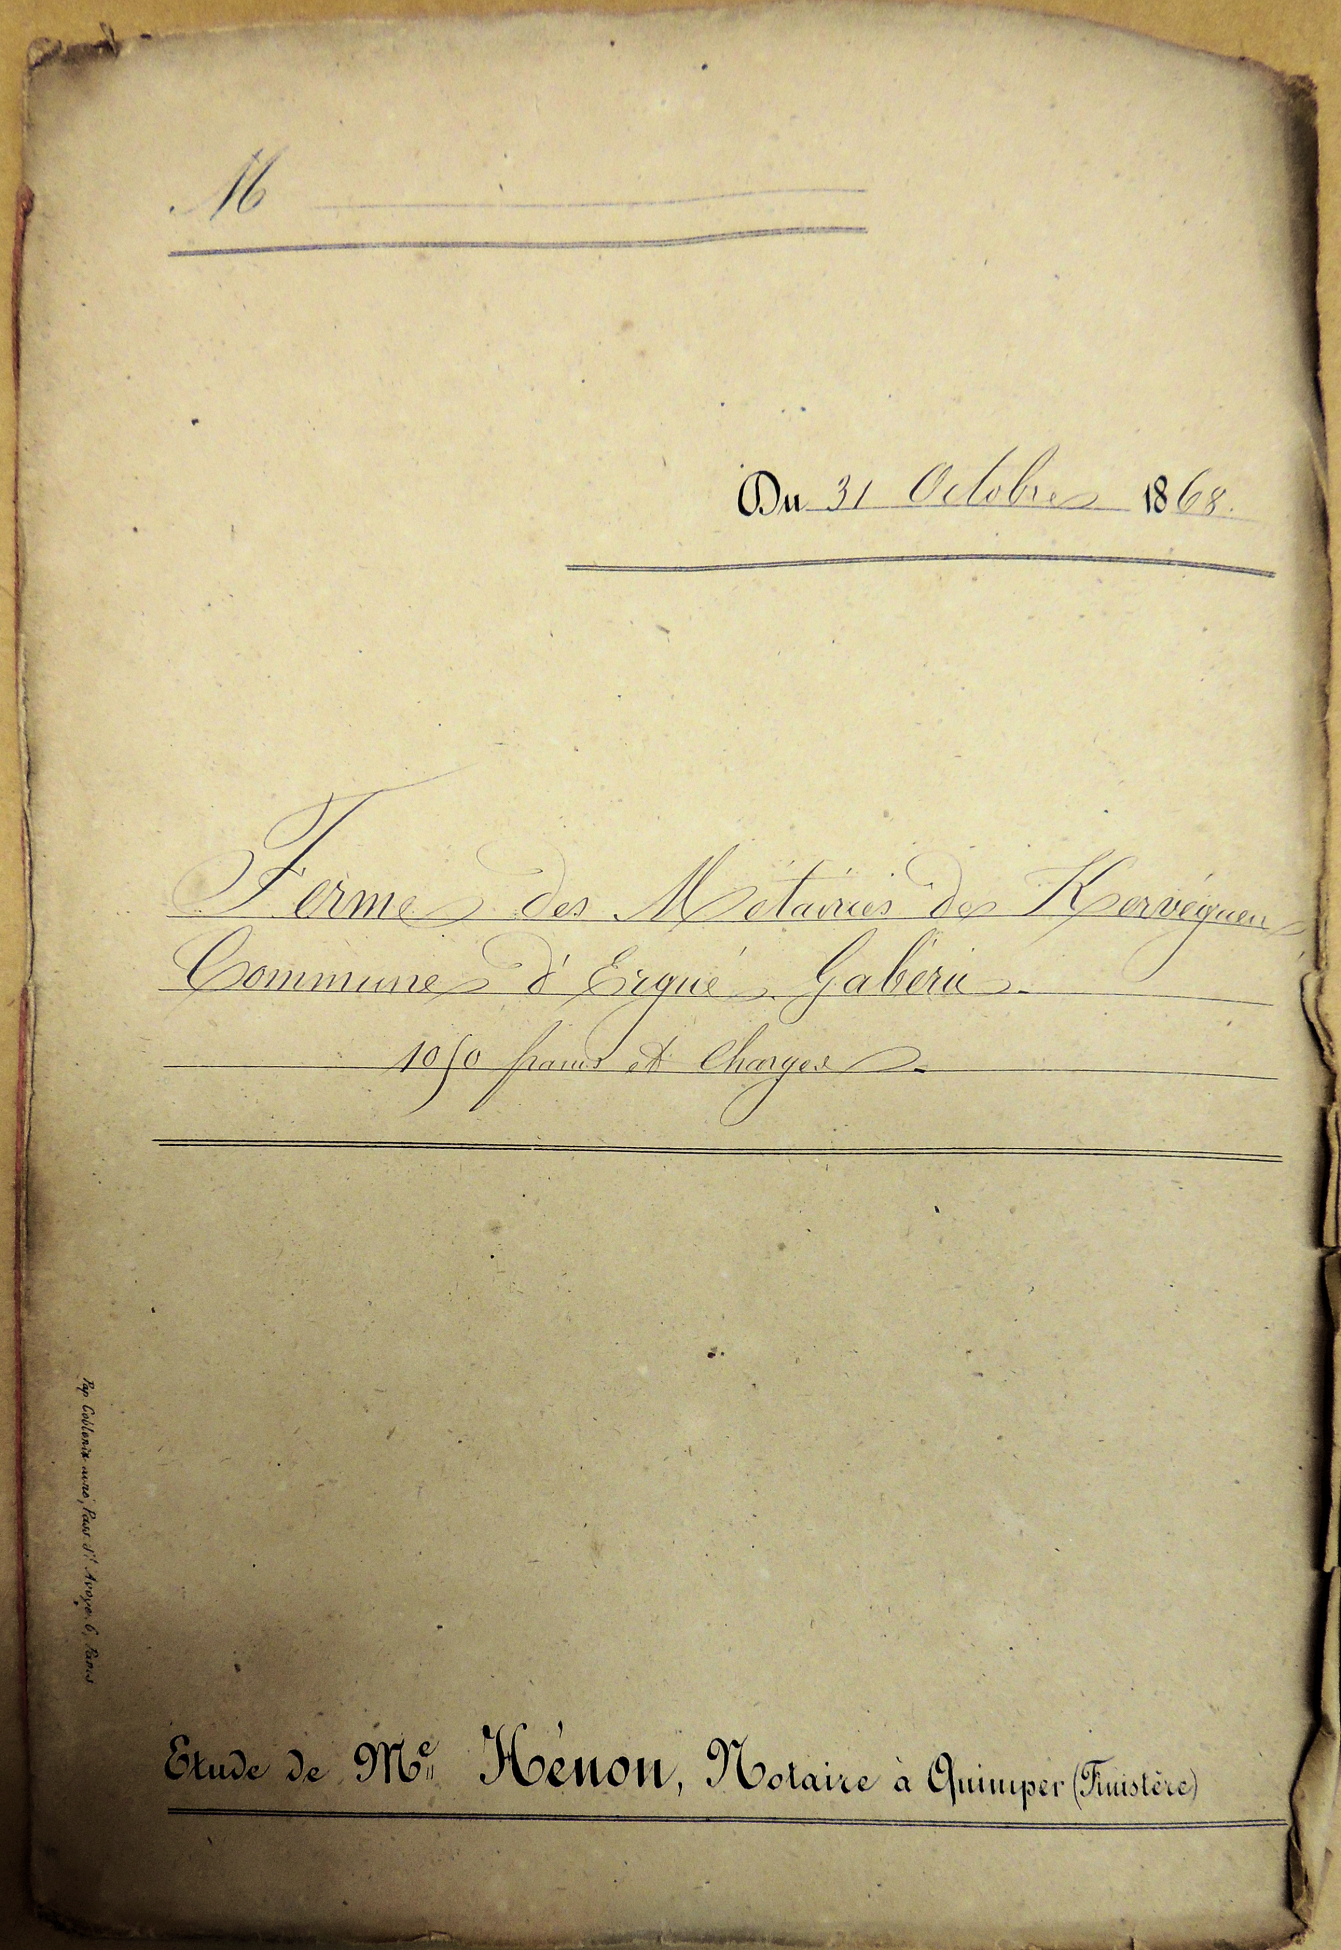 M
Du 31 Octobre 1868.
Ferme des Métairies de Kervéguen
Commune d'Ergué Gabéric.
1050 francs et Charges.
Pap. Coblence ainé, Pass. Ste Avoye. 6, Paris
Etude de Me Hénon, Notaire à Quimper (Finistère)